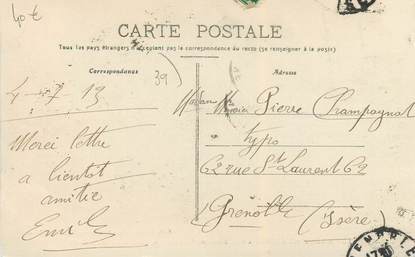 40 €
CARTE POSTALE
Tous les pays étrangers n'acceptent pas la correspondance au recto (se renseigner à la poste)
Correspondance
39
Adresse
4-7 13
Pierre Champagnat
typo
62 rue St Laurent 62
Grenoble (Isère)
Merci lettre
a bientot
amitié